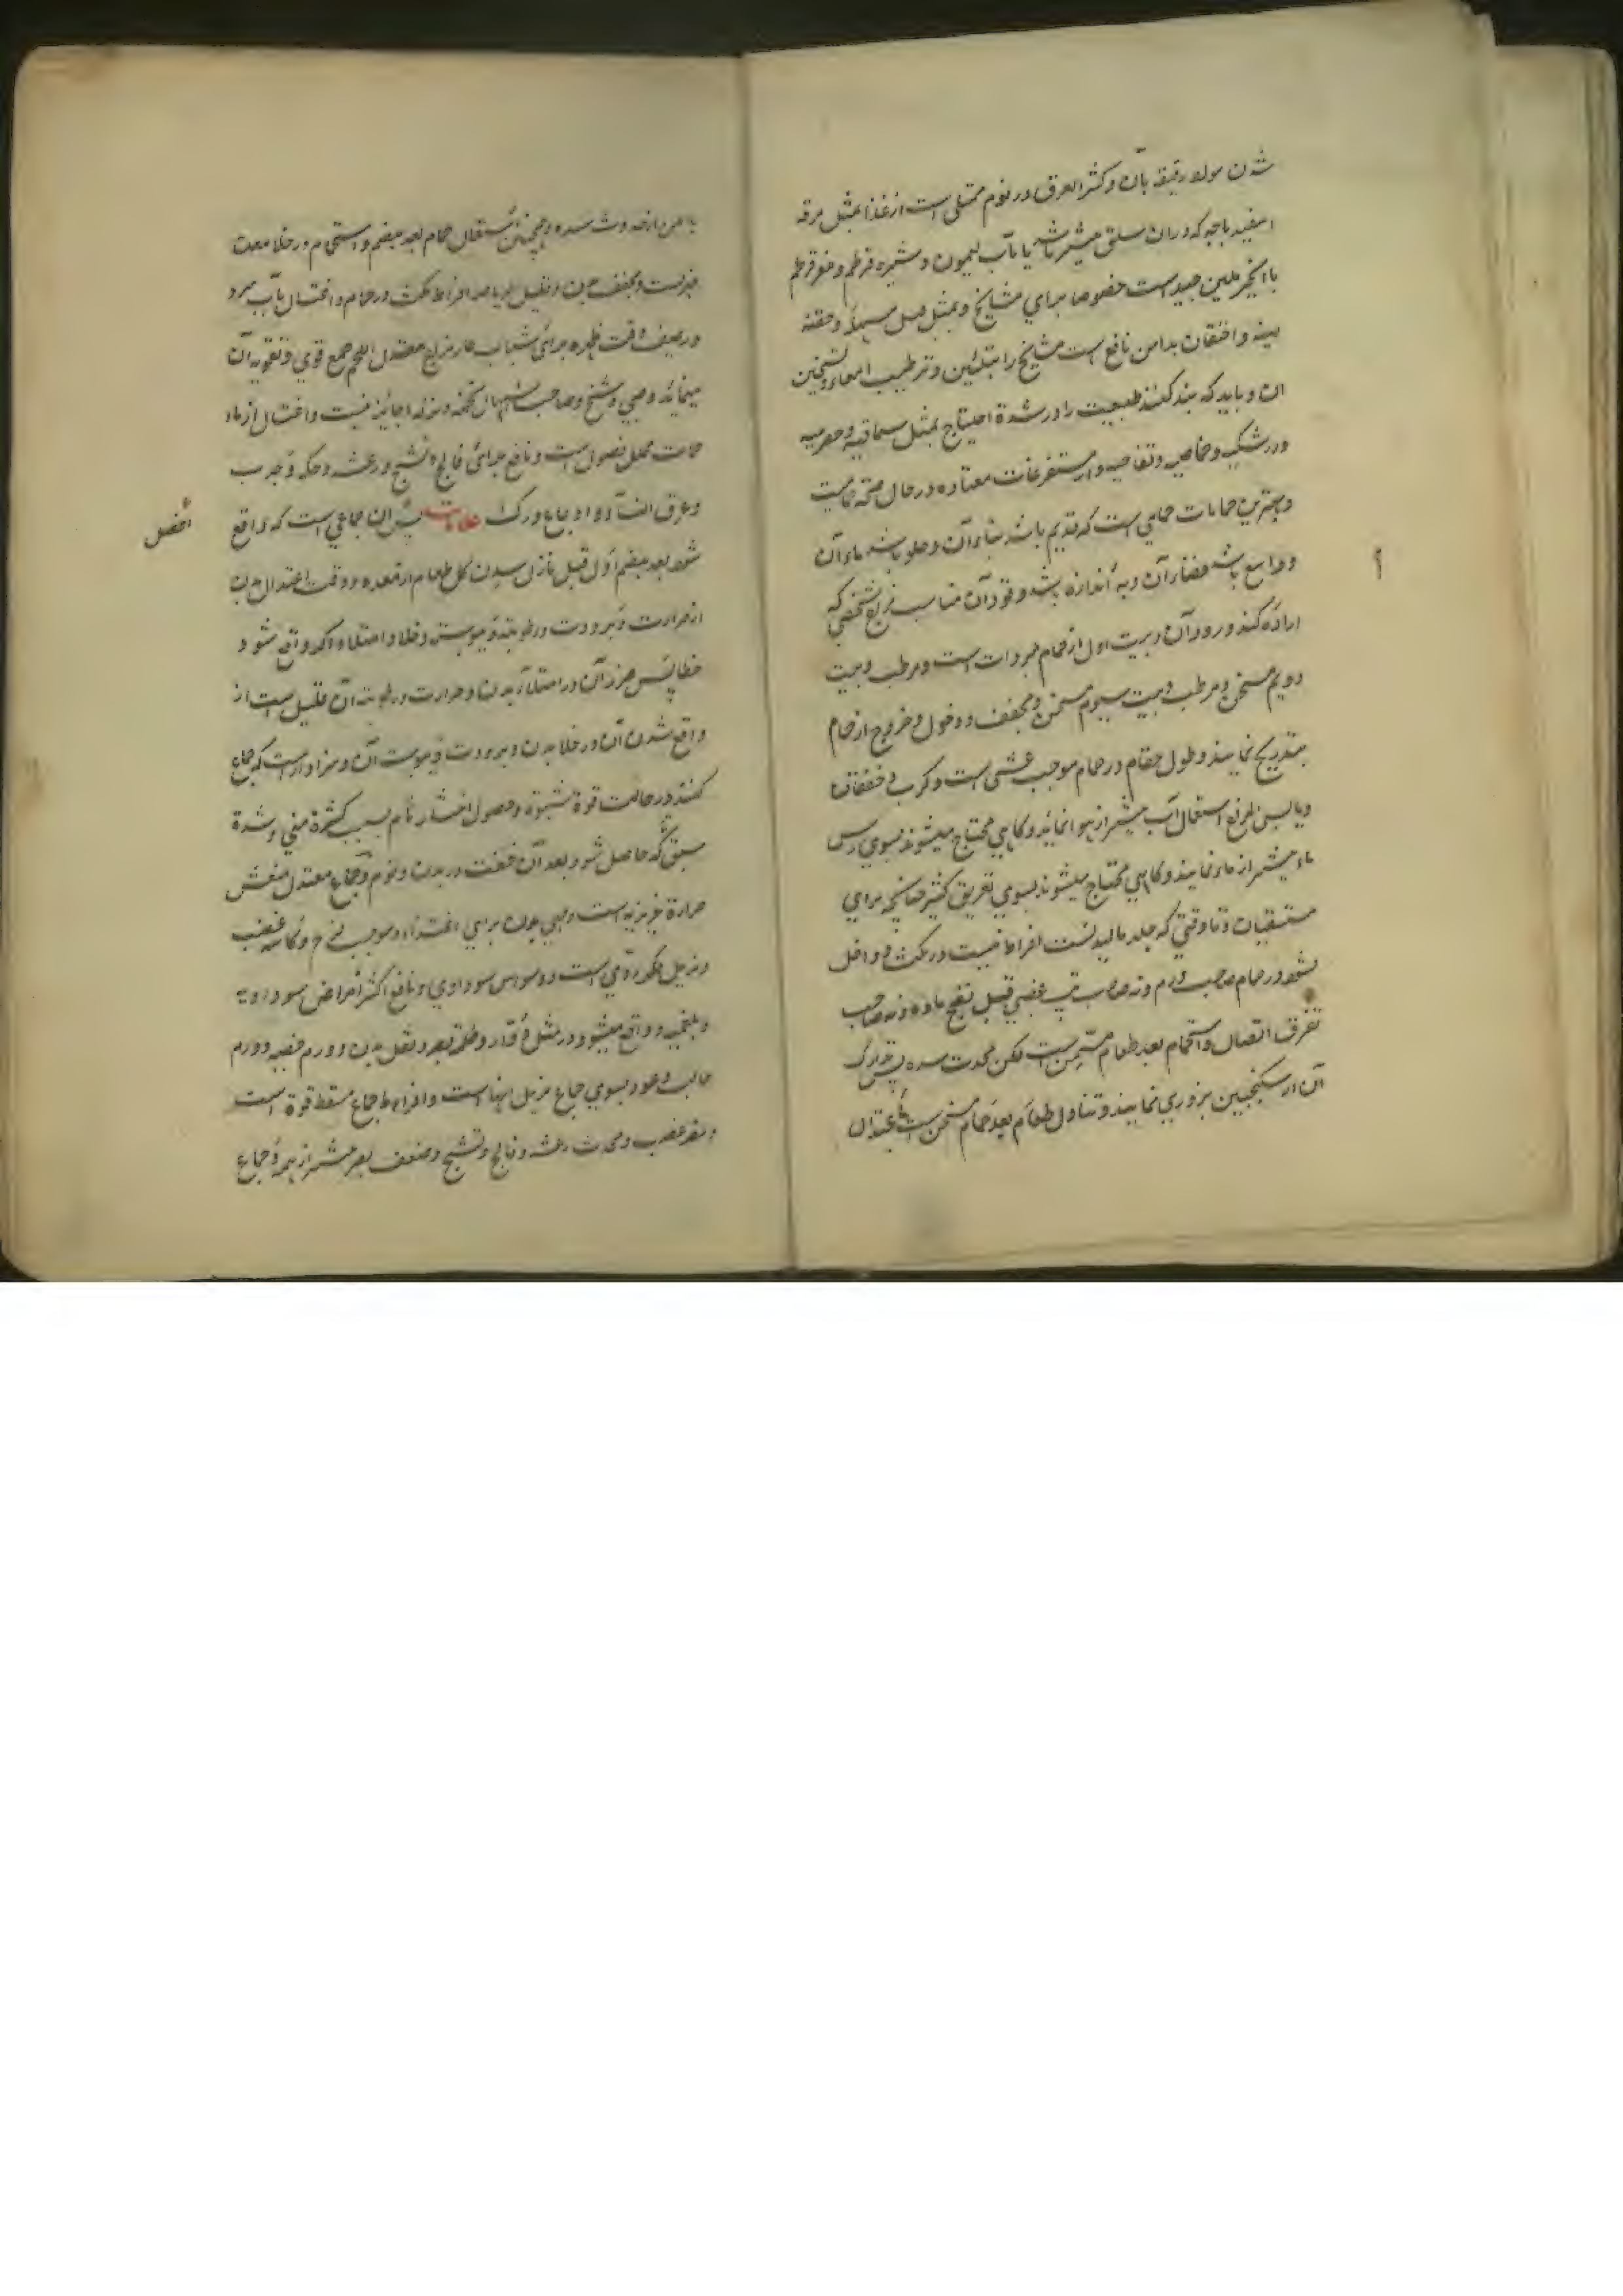 شدن مواد رقیقه بآن و کثر العرق در نوم ممتلی است از غذا بمثل مرقه
اسفیدباجه که دران سلق بیشتر باشد یا بآب لیمون و شیره قرطم و مغز قرطم
با انجیر ملین جید است خصوصا برای مشایخ و بمثل عسل مسهلا و حقنه
لینه و احتقان بدهن نافع است مشایخ را بتلیین و ترطیب امعاء و تسخین
ان و باید که بند کنند طبیعت را در شدة احتیاج بمثل سماقیه و حصرمیه
و زرشکیه و حماضیه و تفاحیه و از مستفرغات معتاده در حال صحة حمام است
و بهترین حمامات حمامی است که قدیم باشد بناء آن و حلو باشد ماء آن
و واسع باشد فضاء آن و به اندازه باشد وقود آن مناسب مزاج شخصی که
اراده کند ورود آن و بیت اول از حمام مبرد است و مرطب و بیت
دویم مسخن و مرطب و بیت سیوم مسخن و مجفف و دخول و خروج از حمام
بتدریج نمایند و طول مقام در حمام موجب غشی است و کرب و خفقان
و یابس المزاج استعمال آب بیشتر از هوا نماید و گاهی محتاج میشوند بسوی رش
ماء بیشتر از ماء نمایند و گاهی محتاج میشوند بسوی تعریق کثیر چنانچه برای
مستسقیان و تا وقتی که جلد مالیدنست افراط نیست در مکث و داخل
نشود در حمام صاحب ورم و نه صاحب تب عفنی قبل نضج ماده و نه صاحب
تفرق اتصال و استحمام بعد طعام مسمن است لکن محدث سده پس تدارک
آن از سکنجبین بزوری نمایند و تناول طعام بعد حمام مسمن است باعتدال
با من از حدوث سده و همچنین استعمال حمام بعد هضم و استحمام در خلا معدت
و مجفف بدن و افراط مکث در حمام و اغتسال بآب سرد
در صیف وقت ظهره برای شباب حار مزاج معتدل اللحم جمع قوی و تقویه آن
مینماید و صبی و شیخ و صاحب اسهال و تخمه و نزله را جایز نیست و اغتسال از ماء
حمات محلل فضول است و نافع برای فالج و تشنج و رعشه و حکه و جرب
و عرق النسا و اوجاع ورک بهترین ان جماعی است که واقع
افضل
شود بعد هضم اول قبل نازل شدن کل طعام از معده و وقت اعتدال بدن
از حرارت و برودت و رطوبت و یبوست و خلا و امتلا و اگر واقع شود
خطا پس ضرر آن در امتلاء بدن و حرارت و رطوبت آن قلیل است از
واقع شدن آن در خلا بدن و برودت و یبوست آن و سزاوار است که جماع
کنند در حالت قوة شهوة و حصول انتشار تام بسبب کثرة منی و شدة
شبق که حاصل شود بعد آن خفت در بدن و نوم و جماع معتدل منعش
حرارة غریزیه است و مهیی بدن برای اغتذاء و موجب فرح و کاسر غضب
و مزیل فکر ردی است و وسواس سوداوی و نافع اکثر امراض سوداویه
و بلغمیه و واقع میشود در مثل دوار و ظلمة بصر و ثقل بدن و ورم خصیه و ورم
حالب و عود بسوی جماع مزیل اینها است و افراط جماع مسقط قوة است
و مضر عصب و محدث رعشه و فالج و تشنج و ضعف بصر بیشتر از همه و جماع